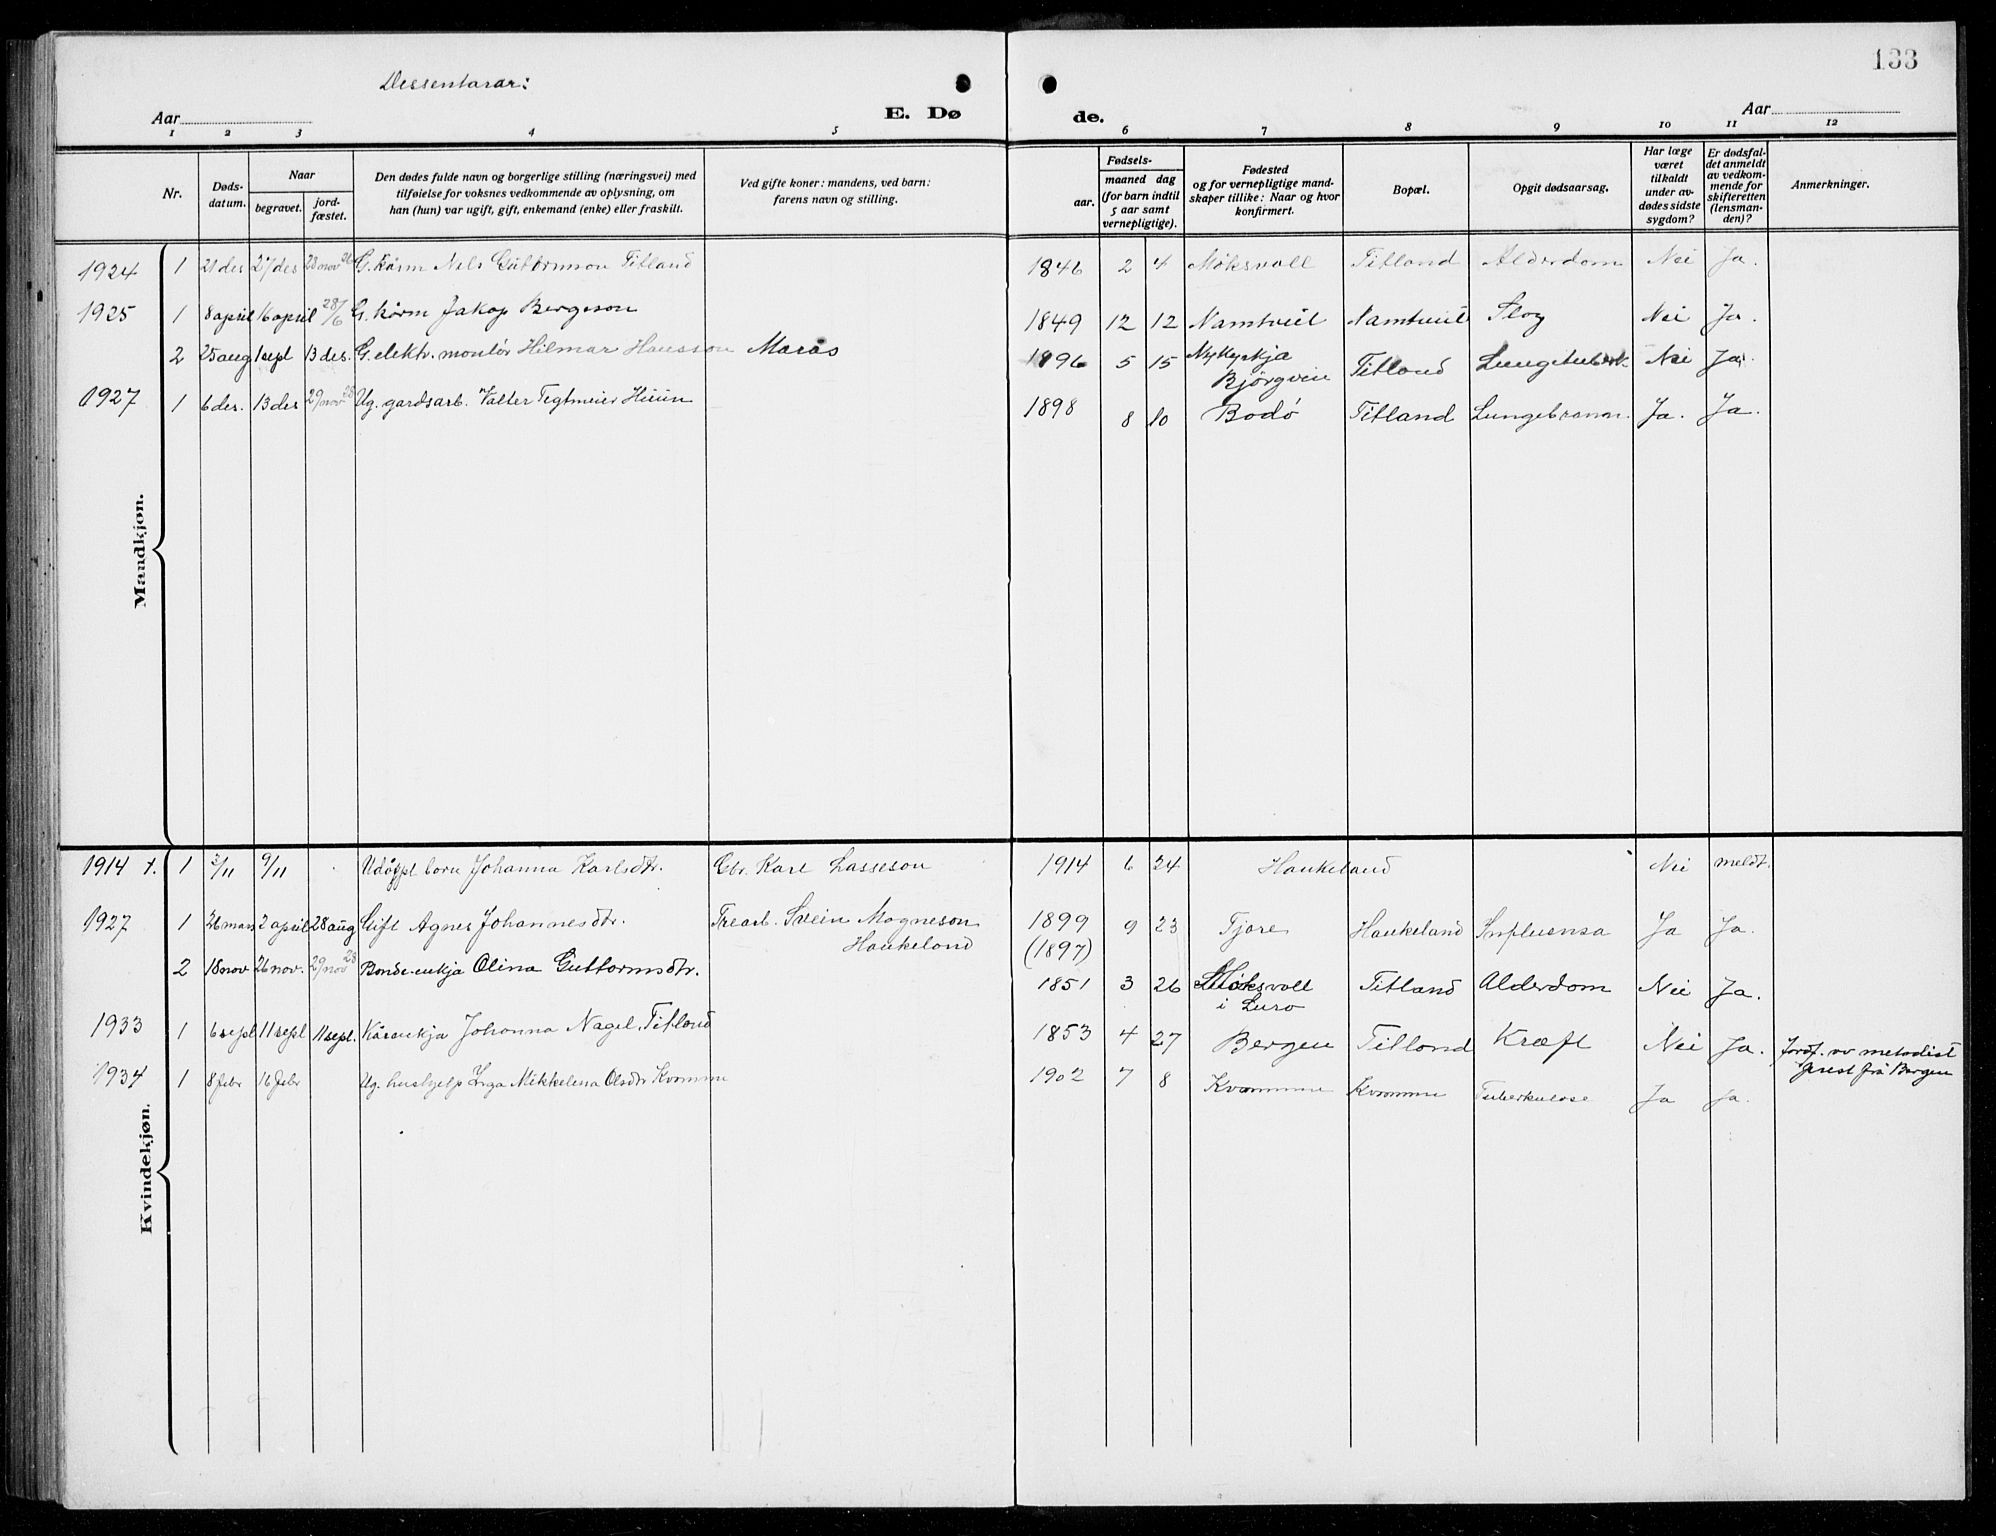 133
Dessentarar:
Aar
E. Dø
de.
Aar
1 2 3 4 5 6 7 8 9 10 11 12
Nr.
Døds-
datum.
Naar
begravet.
jord-
fæstet.
Den dødes fulde navn og borgerlige stilling (næringsvei) med
tilføielse for voksnes vedkommende av oplysning, om
han (hun) var ugift, gift, enkemand (enke) eller fraskilt.
Ved gifte koner: mandens, ved barn:
farens navn og stilling.
Fødsels-
aar.
maaned dag
(for barn indtil
5 aar samt
vernepligtige).
Fødested
og for vernepligtige mand-
skaper tillike: Naar og hvor
konfirmert.
Bopæl.
Opgit dødsaarsag.
Har læge
været
tilkaldt
under av-
dødes sidste
sygdom?
Er dødsfal-
det anmeldt
av vedkom-
mende for
skifteretten
(lensman-
den)?
Anmerkninger.
Mandkjøn.
1924 1 21 des 27 des 28 nov 26 G. kårm Nels Guttormson Titland 1846 2 4 Møksvoll Titland Alderdom Nei Ja.
1925 1 8 april 16 april 28/6 G. kårm Jakop Bergeson 1849 12 12 Namtveit Namtveit Slag Nei Ja.
2 25 aug 1 sept 13 des. G. elektr. montør Hilmar Hansson Marås 1896 5 15 Nykyrkja
Bjørgvin Titland Lungetuberk Nei Ja.
1927 1 6 des. 13 des 29 nov 28 Ug. gardsarb. Valter Tegtmeier 1898 8 10 Bodø Titland Lungebrann. Ja. Ja.
Kvindekjøn.
1914 1. 1 2/11 9/11 Udøypt born Johanna Karlsdtr. Gbr. Karl Lasseson 1914 6 24 Haukeland Nei meldt.
1927 1 26 mars 2 april 28 aug Gift Agnes Johannesdtr. Trearb. Svein Mogneson
Haukeland 1899
(1897) 9 23 Haukeland Influensa Ja Ja.
2 18 nov 26 nov. 29 nov 28 Bonde-enkja Olina Guttormsdtr. 1851 3 26 Møksvoll
i Luro Titland Alderdom Nei Ja.
1933 1 6 sept 11 sept 11 sept. Kårenkja Johanna Nagel Titland 1853 4 27 Bergen Titland Kræft Nei Ja. Jordf. av metodist
prest frå Bergen
1934 1 8 febr 16 febr Ug. hushjelp Inga Mikkelena Olsdtr Kvamme 1902 7 8 Kvamme Kvamme Tuberkulose Ja Ja.